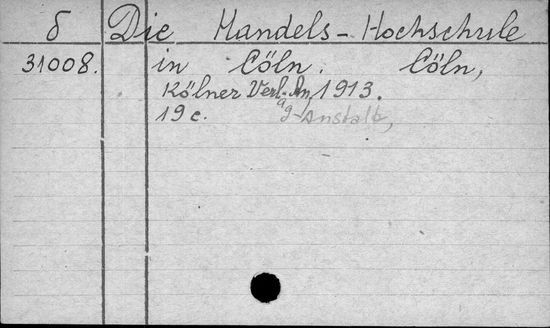 δ Die Handels-Hochschule
31008. in Cöln. Cöln,
Kölner Verl. An, 1913.
19 c. ag-Anstalt,